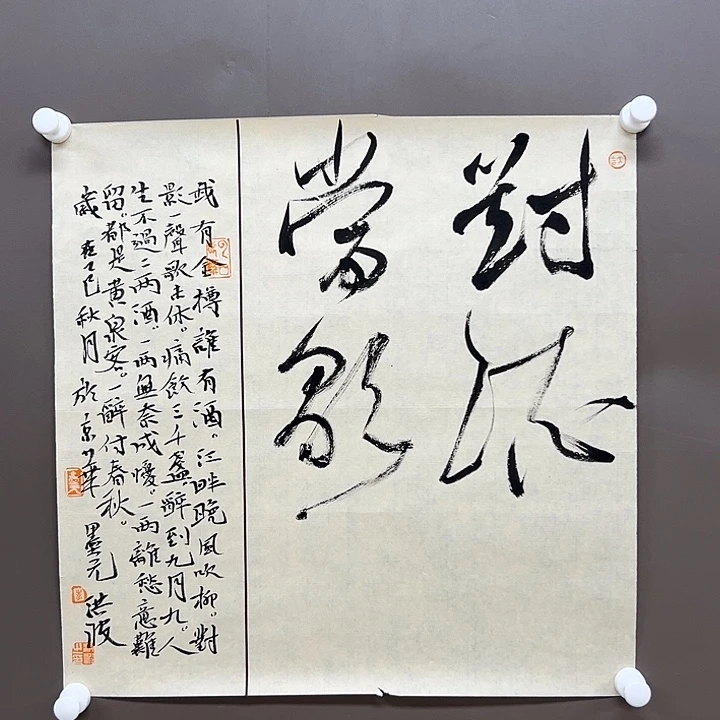 對酒
當歌
我有金樽誰有酒。江畔晚風吹柳。對
影一聲歌未休。痛飲三千盞。醉到九月九。人
生不過二兩酒。一兩無奈成懮。一兩離愁意難
留。都是黃泉客。一醉付春秋。
歲在乙巳秋月於京華 墨元 洪波